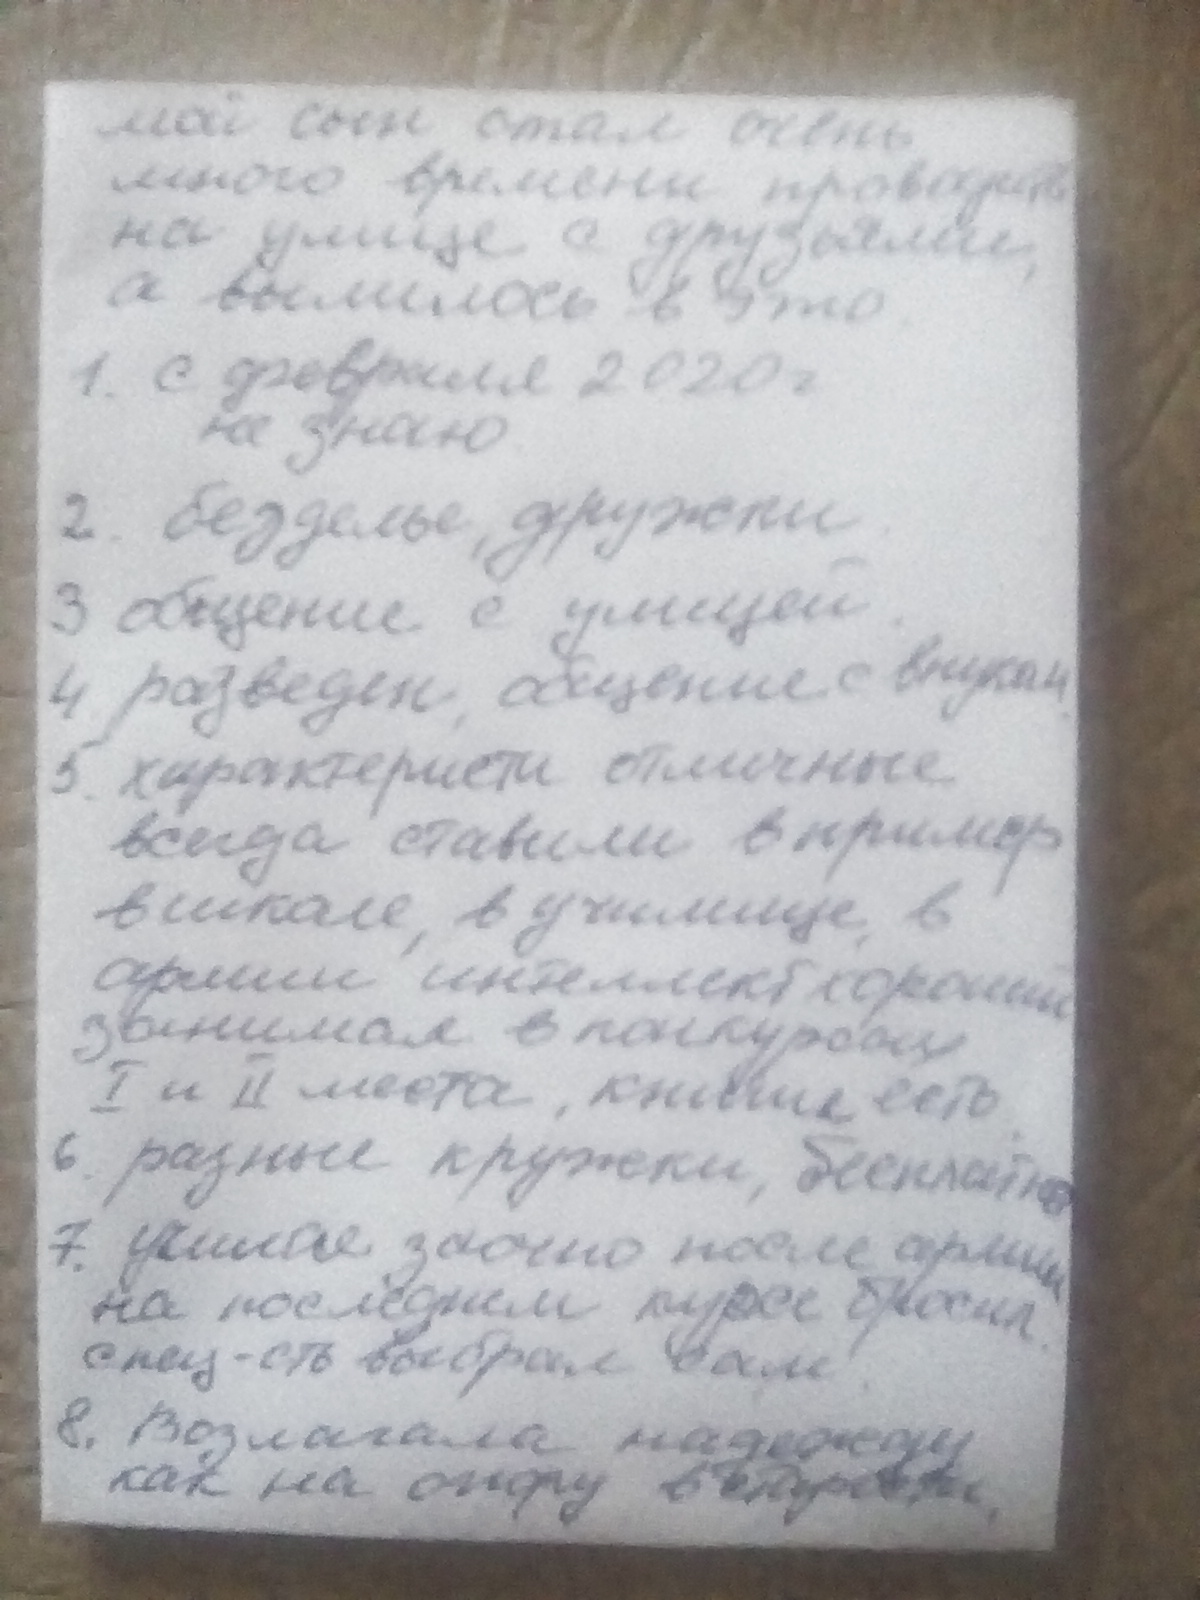 мой сын стал очень
много времени проводить
на улице с друзьями,
а вылилось в это.
1. с февраля 2020г
не знаю
2. безделье, дружки.
3 общение с улицей.
4 разведен, общение с внукам.
5. характеристи отличные
всегда ставили в пример
в школе, в училище, в
армии интеллект хороший
занимал в конкурсах
I и II места, книжка есть.
6. разные кружки, бесплатно
7. учился заочно после армии
на последнем курсе бросил.
спец-сть выбрал сам.
8. Возлагала надежду
как на опору в старости,